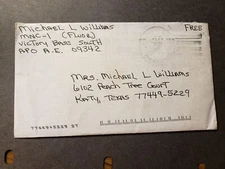 Michael L Williams
MNC-I (FLUOR)
Victory Base South
APO A.E. 09342
FREE
Mrs. Michael L Williams
6102 Peach Tree Court
Katy, Texas 77449-5229